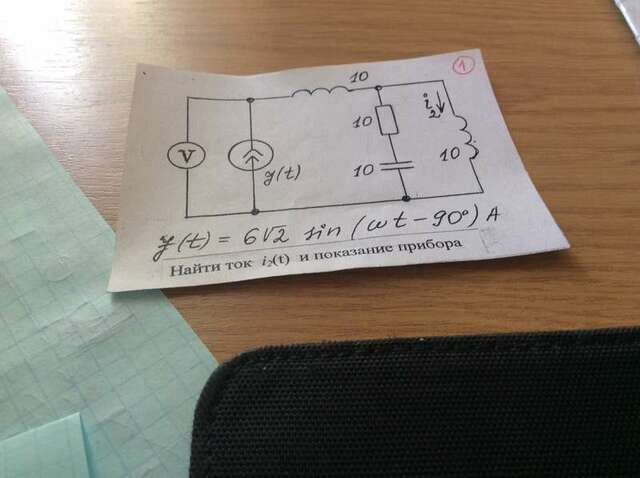 1
10
10
i₂
V
10
10
y(t)
y(t) = 6√2 sin (ωt − 90°) A
Найти ток i₂(t) и показание прибора